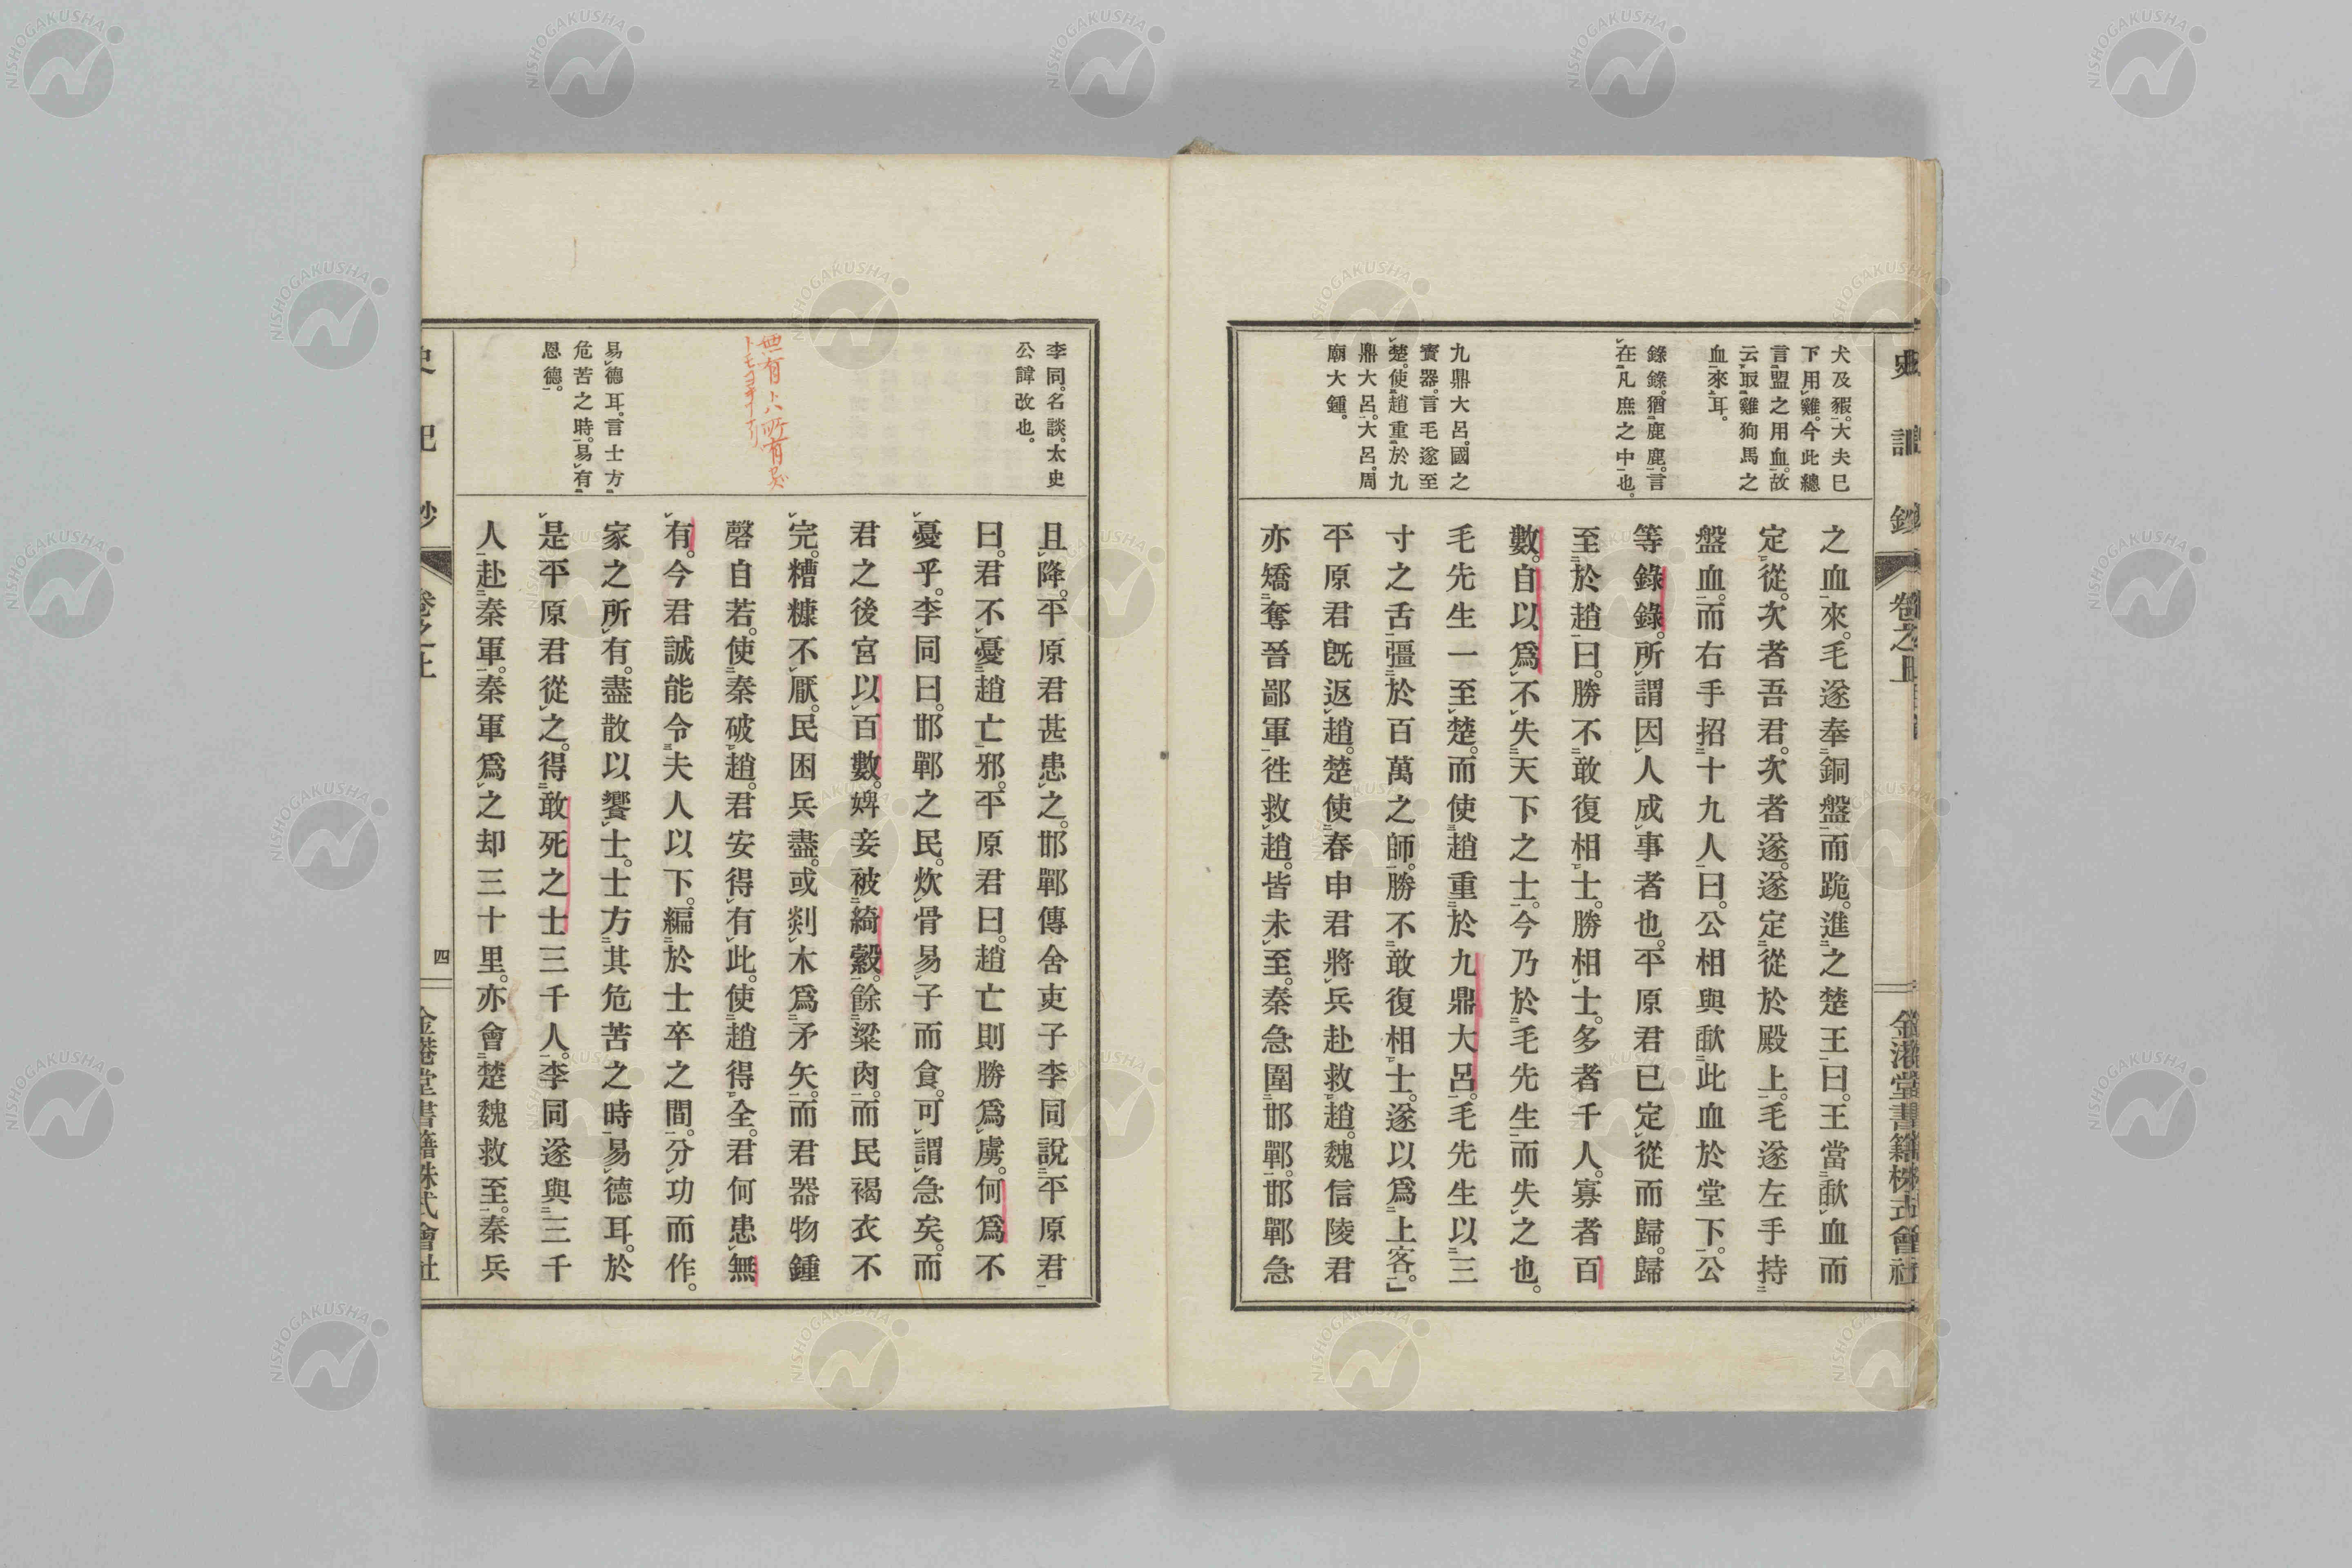 史記鈔 卷之上 金港堂書籍株式會社
犬及豭。大夫已
下用雞。今此總
言盟之用血。故
云取雞狗馬之
血來耳。
錄錄。猶鹿鹿。言
在凡庶之中也。
九鼎大呂。國之
寶器。言毛遂至
楚。使趙重於九
鼎大呂。大呂。周
廟大鍾。
之血來。毛遂奉銅盤而跪。進之楚王曰。王當歃血而
定從。次者吾君。次者遂。遂定從於殿上。毛遂左手持
盤血。而右手招十九人曰。公相與歃此血於堂下。公
等錄錄。所謂因人成事者也。平原君已定從而歸。歸
至於趙曰。勝不敢復相士。勝相士。多者千人。寡者百
數。自以爲不失天下之士。今乃於毛先生而失之也。
毛先生一至楚。而使趙重於九鼎大呂。毛先生以三
寸之舌。彊於百萬之師。勝不敢復相士。遂以爲上客。」
平原君既返趙。楚使春申君將兵赴救趙。魏信陵君
亦矯奪晉鄙軍往救趙。皆未至。秦急圍邯鄲。邯鄲急
李同。名談。太史
公諱改也。
無有上八所有
トモヨキナリ
易德耳。言士方
危苦之時。易有
恩德。
且降。平原君甚患之。邯鄲傳舍吏子李同說平原君
曰。君不憂趙亡邪。平原君曰。趙亡則勝爲虜。何爲不
憂乎。李同曰。邯鄲之民。炊骨易子而食。可謂急矣。而
君之後宮以百數。婢妾被綺縠。餘粱肉。而民褐衣不
完。糟糠不厭。民困兵盡。或剡木爲矛矢。而君器物鍾
磬自若。使秦破趙。君安得有此。使趙得全。君何患無
有。今君誠能令夫人以下。編於士卒之間。分功而作。
家之所有。盡散以饗士。士方其危苦之時。易德耳。於
是平原君從之。得敢死之士三千人。李同遂與三千
人赴秦軍。秦軍爲之却三十里。亦會楚魏救至。秦兵
史記鈔 卷之上 四 金港堂書籍株式會社